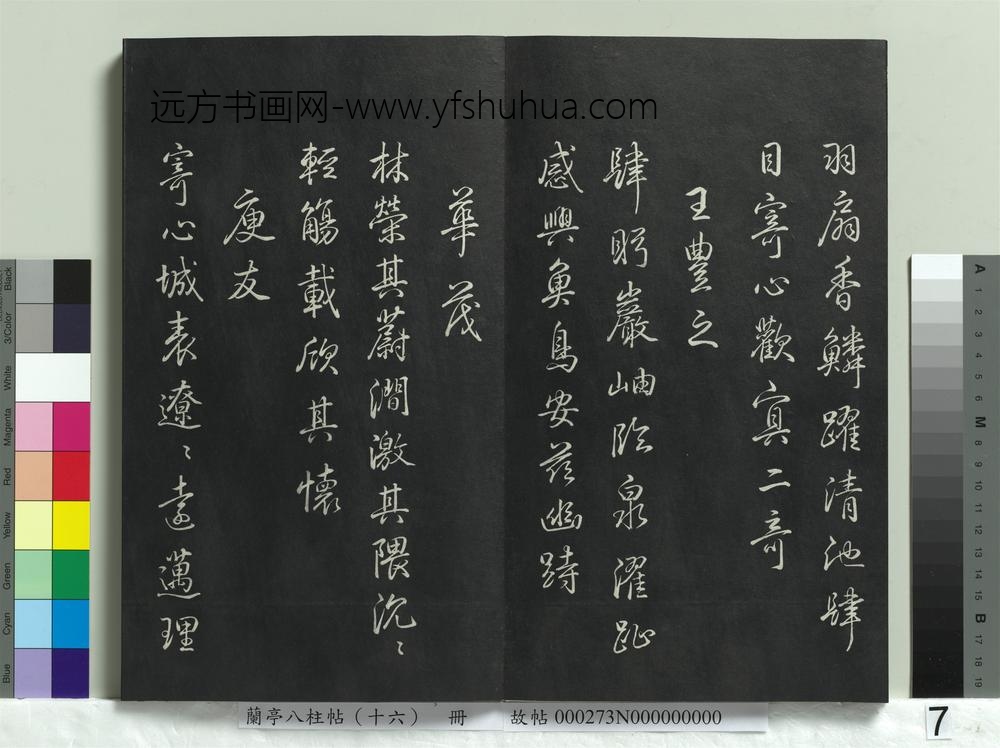 远方书画网-www.yfshuhua.com
羽扇香鱗躍清池肆
目寄心歡寘二奇
王豐之
肆眄巖岫臨泉濯趾
感興魚鳥安茲幽跱
華茂
林榮其蔚澗激其隈汎〻
輕觴載欣其懷
庾友
寄心城表遼〻遠邁理
蘭亭八柱帖（十六） 冊 故帖 000273N000000000
7
Black
3/Color
White
Magenta
Red
Yellow
Green
Cyan
Blue
A
1
2
3
4
5
6
M
8
9
10
11
12
13
14
15
B
17
18
19